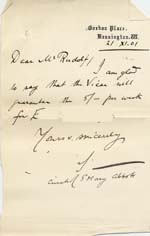 Gordon Place,
Kensington, W.
21 XI. 01
Dear Mr Rudolf
I am glad
to say that the Vicar will
guarantee the 5/- per week
for E
Yours v. sincerely
Curate St Mary Abbots